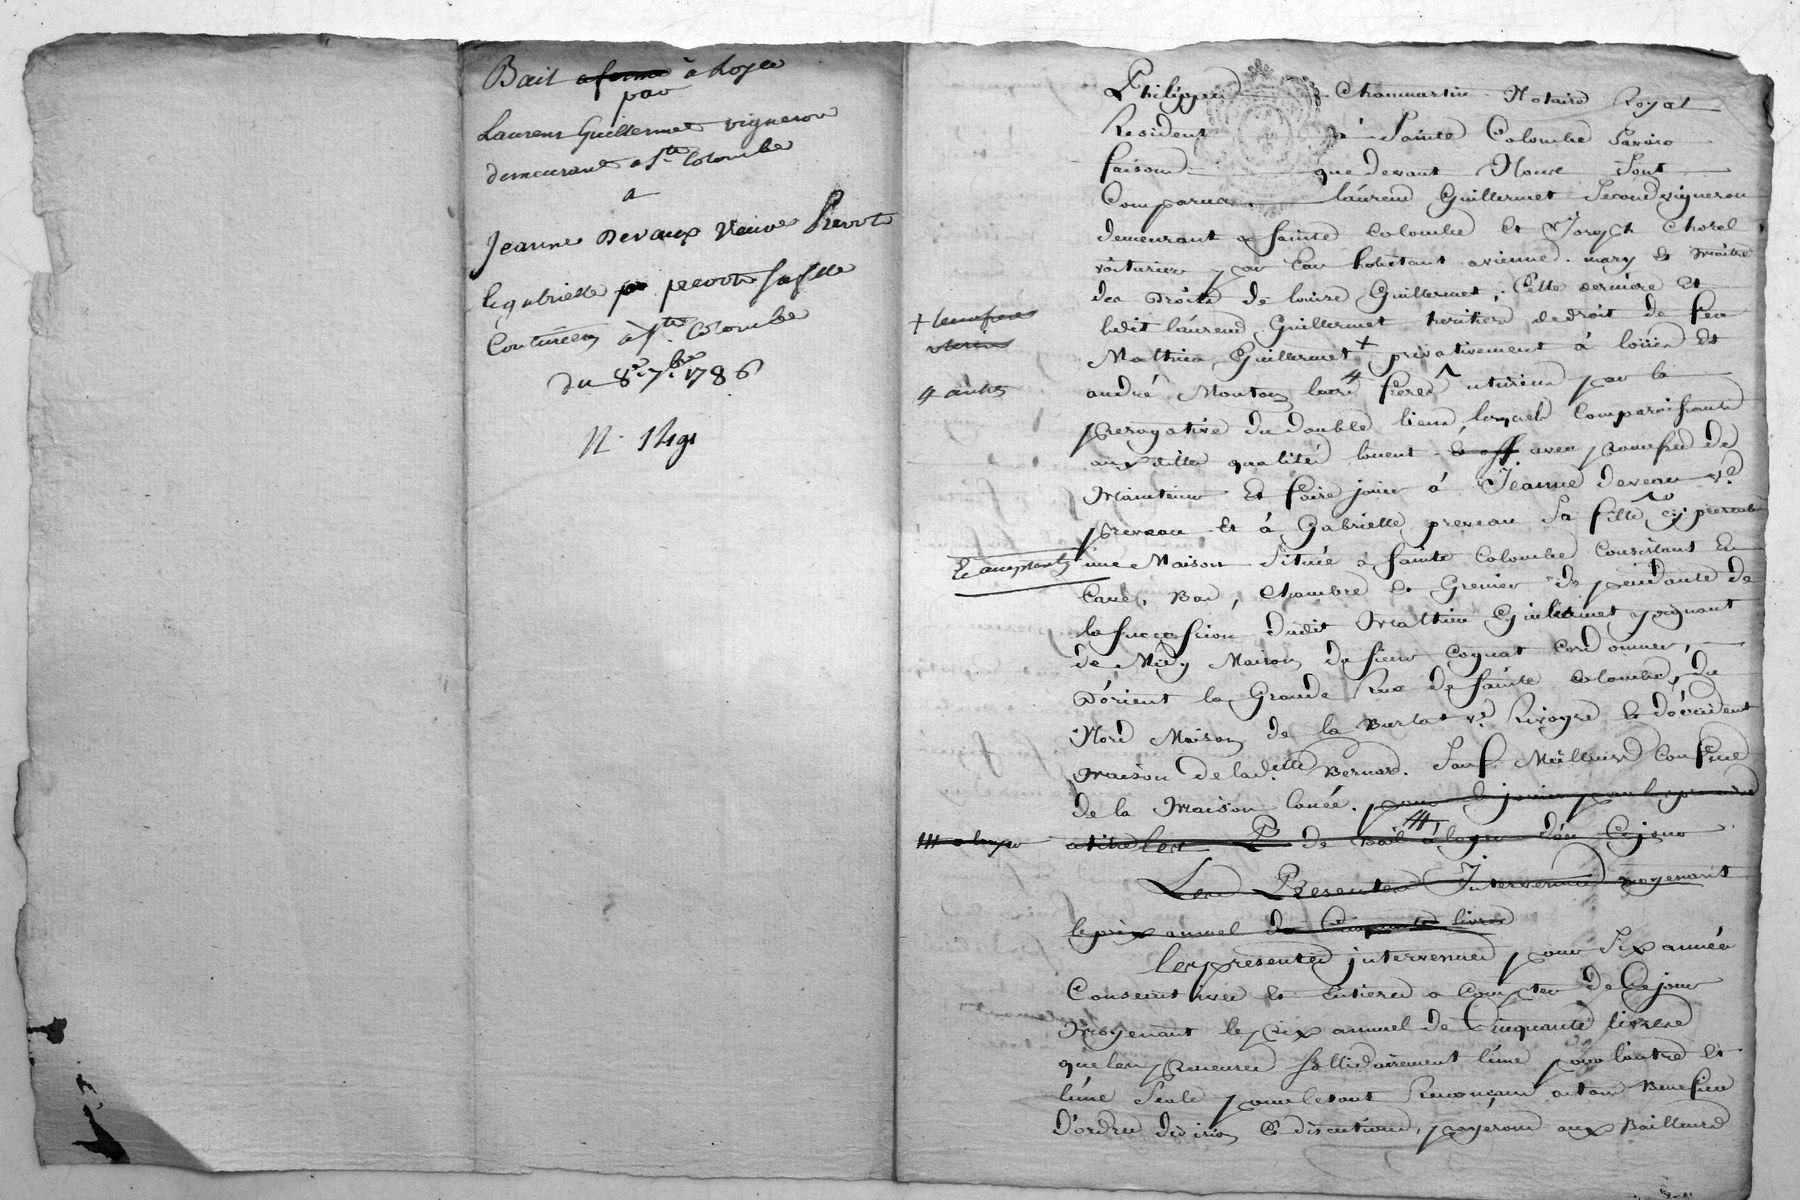 Bail a ferme à loyer
par
Laurent Guillermet vigneron
demeurant a Ste Colombe
a
Jeanne Devaux veuve Prevot
et gabrielle prevot sa fille
Couturieres à Ste Colombe
du 8e 7bre 1786
N. 1491
Philippe Chanmartin Notaire Royal
Resident à Sainte Colombe
faisons que devant Nous sont
Comparus laurend Guillermet Second vigneron
demeurant a sainte Colombe Et Joseph Chorel
voiturier par Eau habitant a vienne mary Et maitre
des Droits de louise Guillermet, Cette derniere Et
ledit laurend Guillermet heritiers de droit de feu
Mathieu Guillermet + privativement à loüis Et
+ leurs freres
uterins
andré Mouton leurs # freres uterins par la
# autres
prerogative du double lien, lesquels Comparaissants
aux dittes qualités louent avec promesse de
Maintenir Et faire jouir à Jeanne deveau ve
preveau Et à Gabrielle preveau Sa fille cy presentes
Et acceptantes une Maison Située a sainte Colombe Consistant En
Cave, Bas, Chambre Et Grenier dependante de
la succession dudit Mathieu Guillermet joignant
de Midy Maison du sieur Cognat Cordonnier,
D'orient la Grande Rue de sainte Colombe, du
Nord Maison de la Burlat ve Rivoyre Et d'occident
maison de lad. Bernard. Sauf Meilleurs Confins
de la Maison louée. pour En jouir par les preneurs
a titre de Bail à loyer dès Ce jour
### a loyer
Les Presentes Intervenues moyenant
le prix annuel de Cinquante livres
les presentes intervenues pour Six années
Consecutives Et Entieres a Compter de Ce jour
Moyenant le prix annuel de Cinquante livres
que les preneuses sollidairement l'une pour l'autre Et
l'une Seule pour le tout Renonçant au Benefice
D'ordre division Et discutions, payeront aux Bailleurs